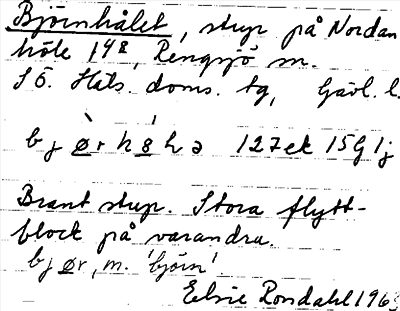 Björnhålet, stup på Nordan
höle 148, Rengsjö sn.
S Ö. Häls. doms. tg, Gävl. l.
b j ø r h 8 h ə 127ek 15G 1j
Brant stup. Stora flytt-
block på varandra.
bjør, m. 'björn'
Elsie Rondahl 1963